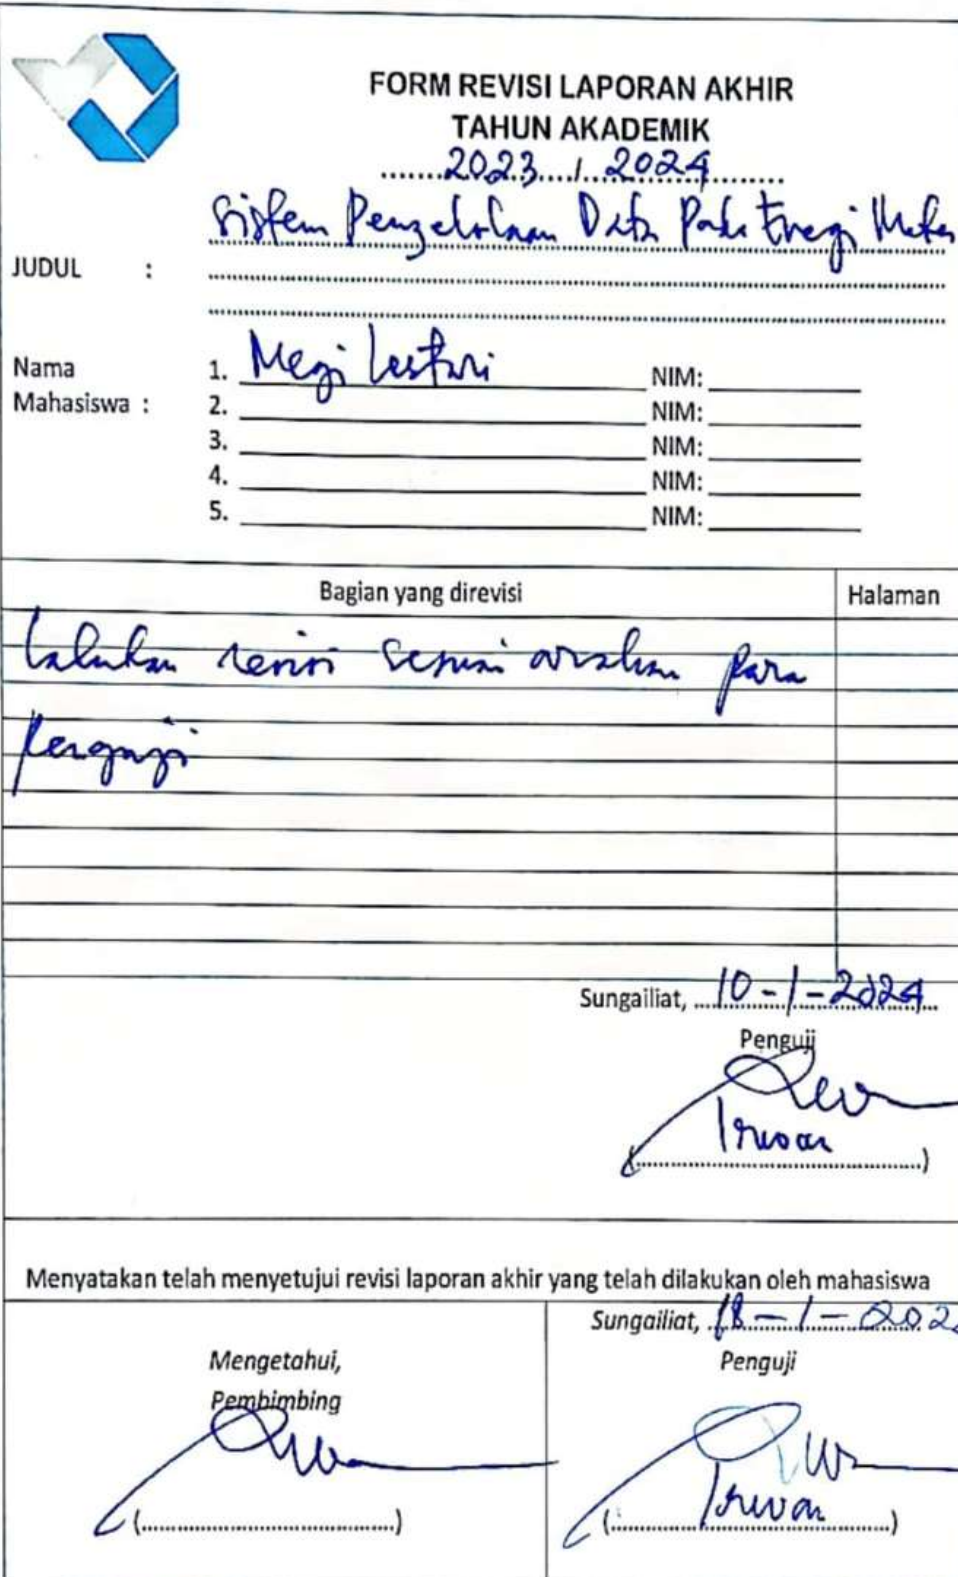 FORM REVISI LAPORAN AKHIR
TAHUN AKADEMIK
2023 / 2024
JUDUL : Sistem Pengelolaan Data Pada Energi Meter
Nama
Mahasiswa :
1. Megi Lestari NIM:
2. NIM:
3. NIM:
4. NIM:
5. NIM:
Bagian yang direvisi Halaman
Lakukan revisi sesuai arahan para
penguji
Sungailiat, 10-1-2024
Penguji
Irwan
(....................)
Menyatakan telah menyetujui revisi laporan akhir yang telah dilakukan oleh mahasiswa
Sungailiat, 18-1-202
Mengetahui,
Pembimbing
(....................)
Penguji
Irwan
(....................)